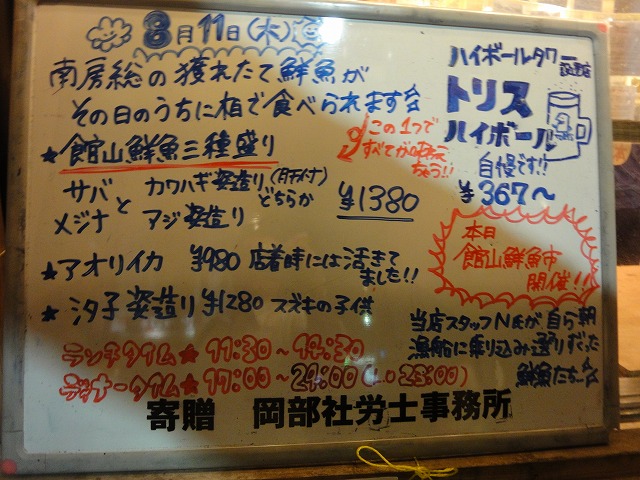 8月11日(木)
南房総の獲れたて鮮魚が
その日のうちに柏で食べられます☆
★館山鮮魚三種盛り
この1つで
すべてが味わえ
ちゃう!!
サバ と カワハギ姿造り(肝付)どちらか
メジナ アジ姿造り
¥1380
★アオリイカ ¥980 店着時には活きて
ました!!
★汐子姿造り ¥1280 スズキの子供
ランチタイム★11:30~14:30
ディナータイム★17:00~24:00(L.O 23:00)
ハイボールタワー
設置店
トリス
ハイボール
自慢です!!
¥367~
本日
館山鮮魚市
開催!!
当店スタッフN氏が自ら朝
漁船に乗り込み選りすぐった
鮮魚たち☆
寄贈 岡部社労士事務所